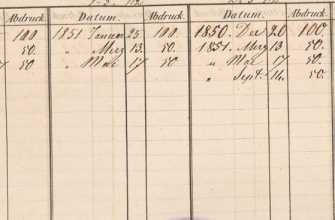 Abdruck. Datum. Abdruck. Datum. Abdruck.
100 1851 Januar 25 100. 1850. Dec 20 100
50. " Merz 13. 50. 1851. Merz 13 50.
50 " Mai 17 50 " Mai 17 50.
" Sept. 16. 50.